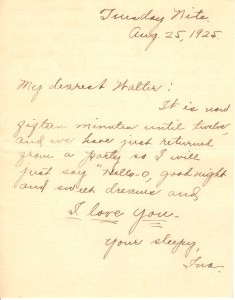 Tuesday Nite.
Aug. 25, 1925.
My dearest Walter:
It is now
fifteen minutes until twelve,
and we have just returned
from a party so I will
just say "Hello-o, goodnight
and sweet dreams and
I love you-
Your sleepy,
Ina.